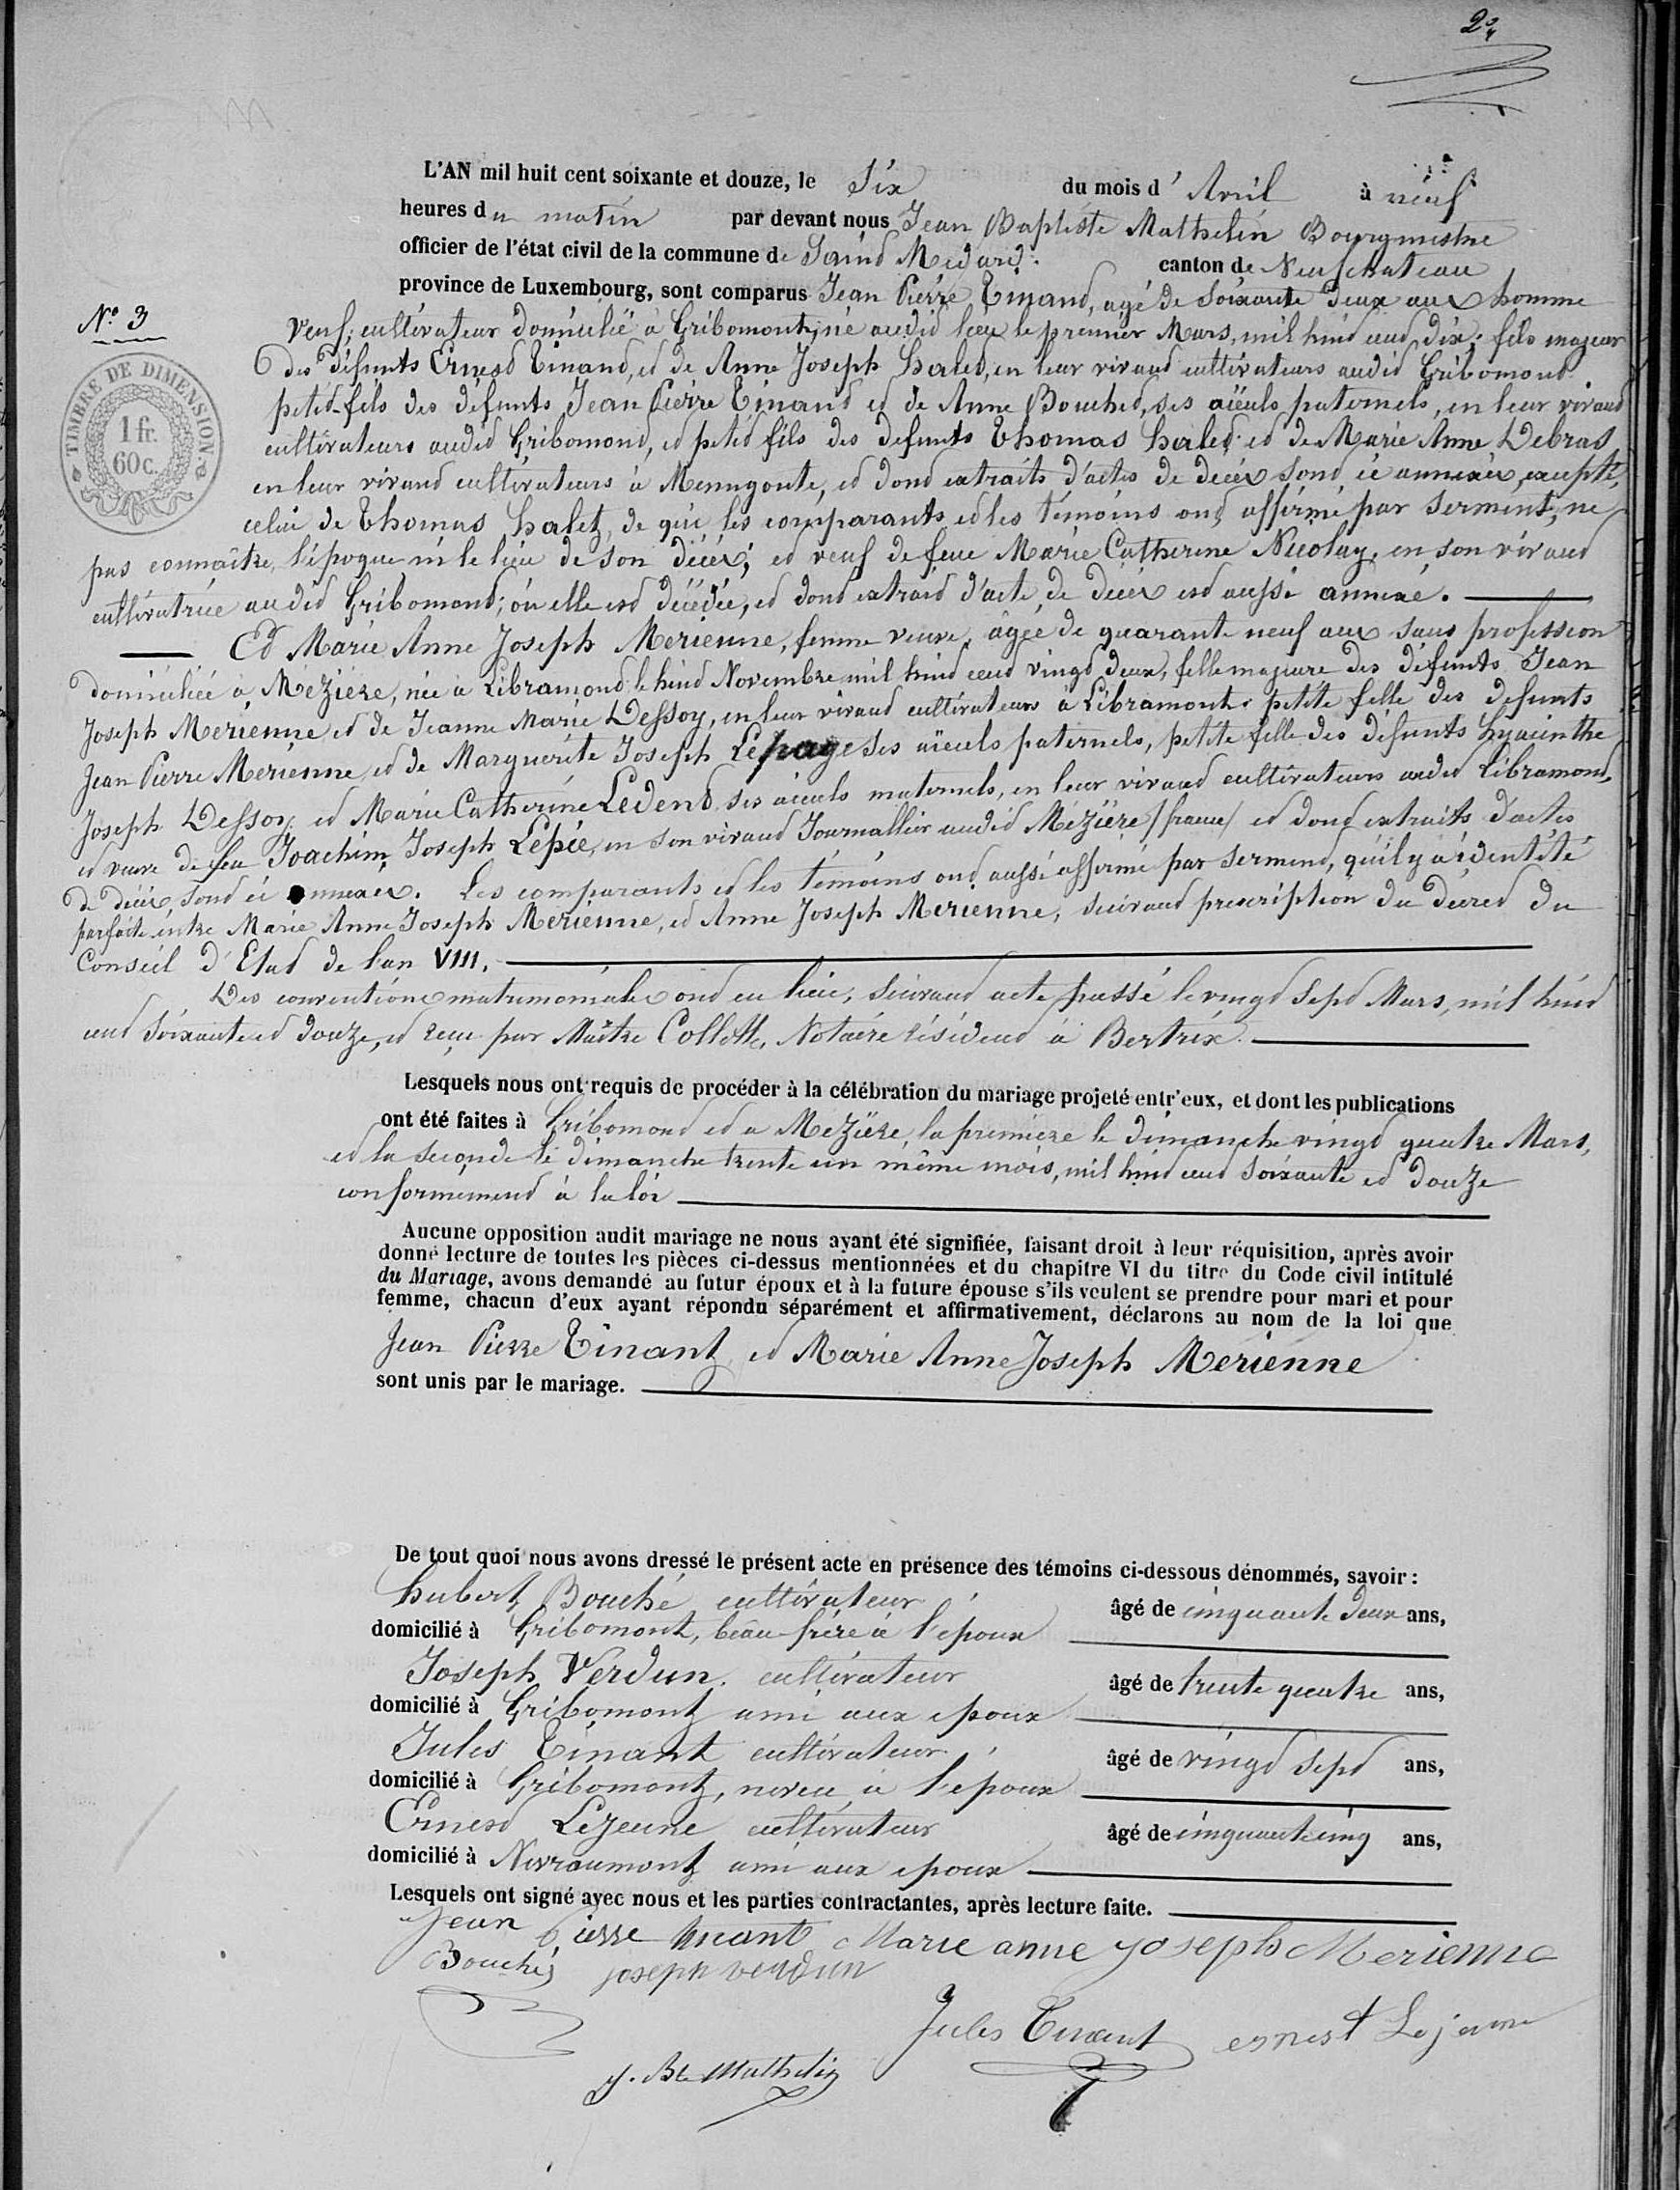 2e
L'AN mil huit cent soixante et douze, le Six du mois d' Avril à neuf
heures du matin par devant nous Jean Baptiste Mathelin Bourgmestre
officier de l'état civil de la commune de Saint Médard canton de Neufchateau
province de Luxembourg, sont comparus Jean Pierre Tinant, agé de Soixante deux ans homme
N° 3
TIMBRE DE DIMENSION
1 fr.
60 c.
Veuf; cultivateur domicilié à Gribomont, né audit lieu le premier Mars, mil huit cent dix; fils majeur
des défunts Ernest Tinant, et de Anne Joseph Halet, en leur vivant cultivateurs audit Gribomont
petit-fils des défunts Jean Pierre Tinant et de Anne Bouchet, ses aïeuls paternels, en leur vivant
cultivateurs audit Gribomont, et petit fils des défunts Thomas Halet et de Marie Anne Debras
en leur vivant cultivateurs à Menugoute, et dont extraits d'actes de décès sont ici annexés, excepté
celui de Thomas Halet, de qui les comparants et les témoins ont affirmé par serment, ne
pas connaître, l'époque ni le lieu de son décès; et veuf de feue Marie Catherine Nicolay, en son vivant
cultivatrice audit Gribomont; où elle est décédée, et dont extrait d'acte de décès est aussi annexé.
Et Marie Anne Joseph Merienne, femme veuve, âgée de quarante neuf ans sans profession
domiciliée à Mézière, née à Libramont le huit Novembre mil huit cent vingt deux, fille majeure des défunts Jean
Joseph Merienne et de Jeanne Marie Dessoy, en leur vivant cultivateurs à Libramont, petite fille des défunts
Jean Pierre Merienne, et de Marguerite Joseph Lepage ses aïeuls paternels, petite fille des défunts Hyacinthe
Joseph Dessoy et Marie Catherine Ledent ses aïeuls maternels, en leur vivant cultivateurs audit Libramont,
et veuve de feu Joachim Joseph Lépie, en son vivant Journallier audit Mézière / france / et dont extraits d'actes
de décès sont ici annexés. Les comparants et les témoins ont aussi affirmé par serment, qu'il y a identité
parfaite entre Marie Anne Joseph Merienne, et Anne Joseph Merienne, suivant prescription du décret du
Conseil d'Etat de l'an VIII.
Des conventions matrimoniales ont eu lieu, suivant acte passé le vingt sept Mars, mil huit
cent soixante et douze, et reçu par Maître Collette, Notaire résident à Bertrix.
Lesquels nous ont requis de procéder à la célébration du mariage projeté entr'eux, et dont les publications
ont été faites à Gribomont et a Mézière, la première le dimanche vingt quatre Mars,
et la seconde le dimanche trente un même mois, mil huit cent soixante et douze
conformément à la loi
Aucune opposition audit mariage ne nous ayant été signifiée, faisant droit à leur réquisition, après avoir
donné lecture de toutes les pièces ci-dessus mentionnées et du chapitre VI du titre du Code civil intitulé
du Mariage, avons demandé au futur époux et à la future épouse s'ils veulent se prendre pour mari et pour
femme, chacun d'eux ayant répondu séparément et affirmativement, déclarons au nom de la loi que
Jean Pierre Tinant et Marie Anne Joseph Merienne
sont unis par le mariage.
De tout quoi nous avons dressé le présent acte en présence des témoins ci-dessous dénommés, savoir :
hubert Bouché cultivateur âgé de cinquante deux ans,
domicilié à Gribomont, beau-frère à l'époux
Joseph Verdun cultivateur âgé de trente quatre ans,
domicilié à Gribomont ami aux epoux
Jules Tinant cultivateur âgé de vingt sept ans,
domicilié à Gribomont, neveu à l'epoux
Ernest Lejeune cultivateur âgé de cinquante cinq ans,
domicilié à Nevraumont ami aux epoux
Lesquels ont signé avec nous et les parties contractantes, après lecture faite.
Jean Pierre tinant Marie anne joseph Merienne
Bouché joseph verdun
Jules Tinant ernest Lejeune
J. Bte Mathelin